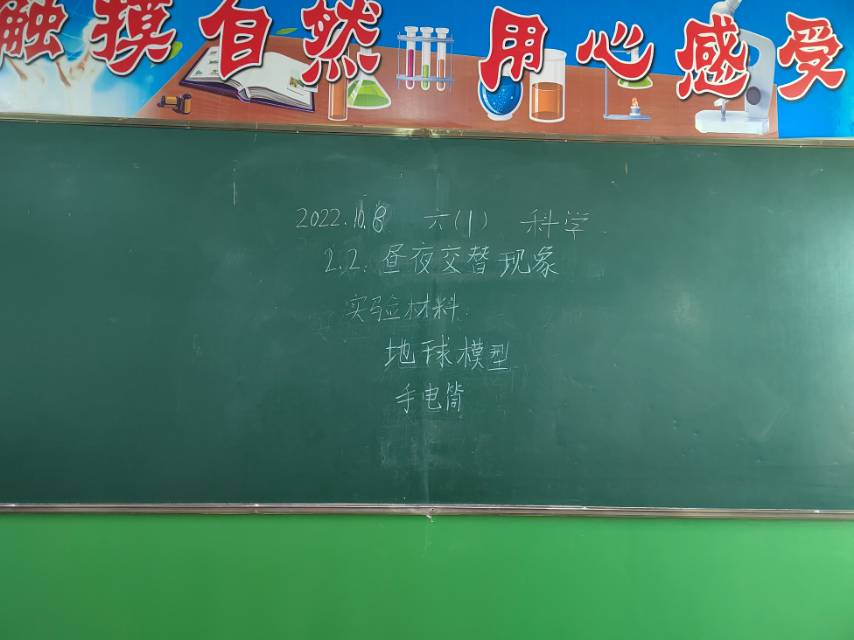 触摸自然 用心感受
2022.10.8 六(1) 科学
2.2.昼夜交替现象
实验材料
地球模型
手电筒